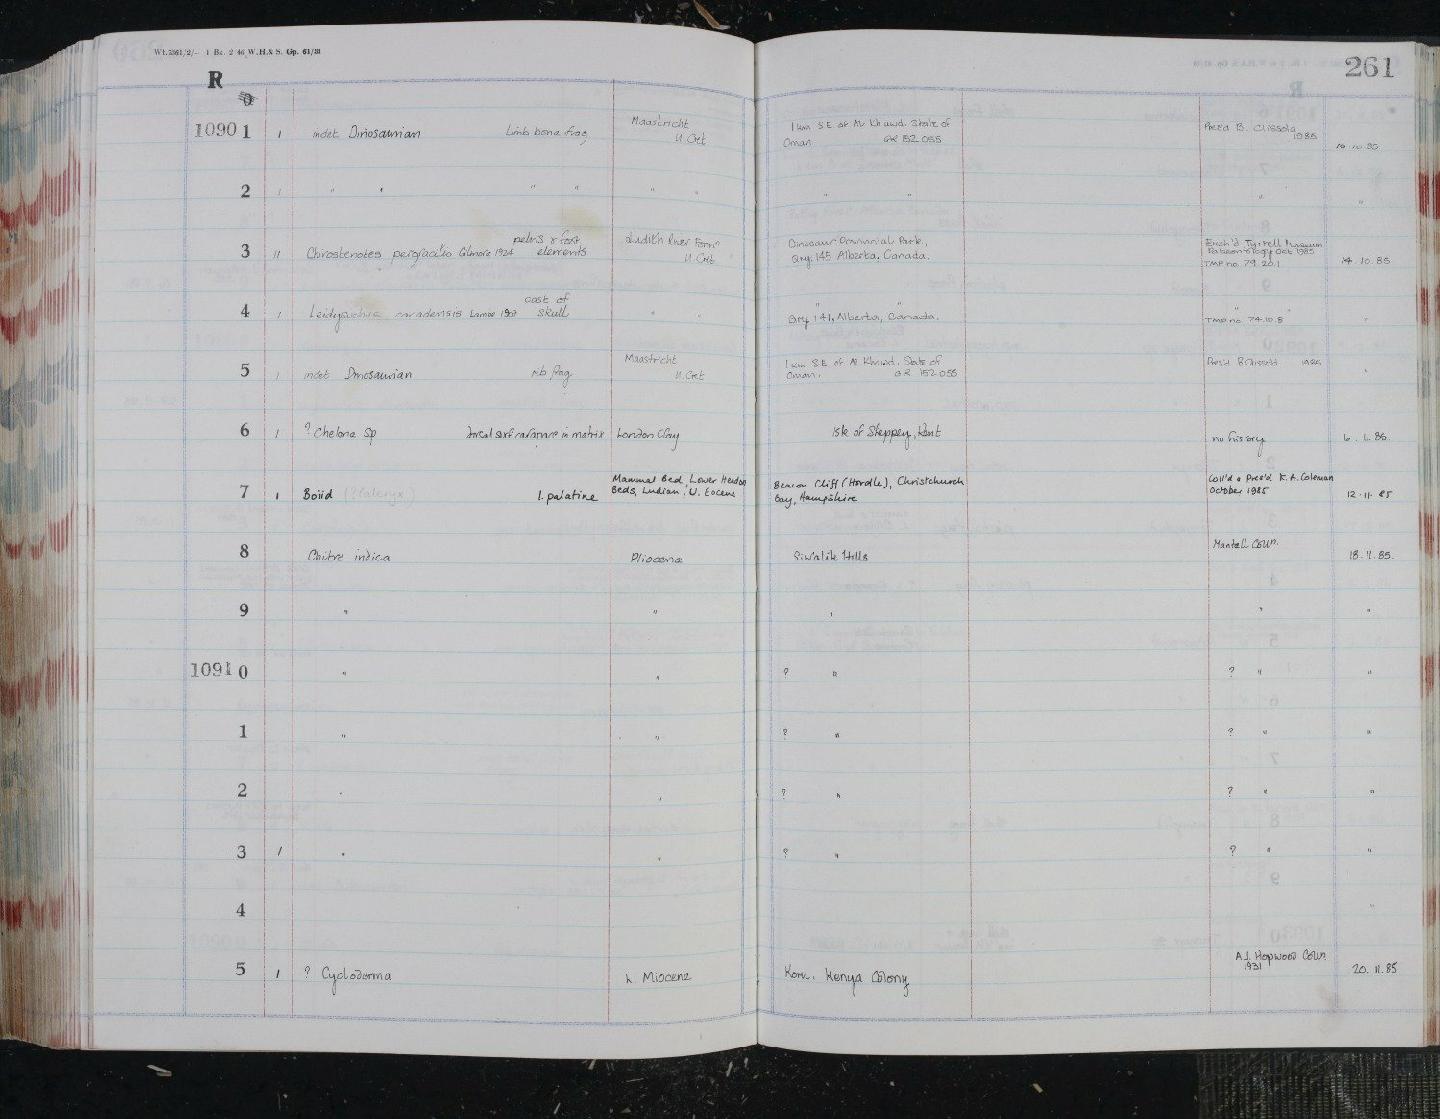 Wt.2361/2/- 1 Bk. 2 46 W.H.& S. Gp. 61/31
261
R
0
1090 1 1 indet Dinosaurian Limb bone frag, Maastricht U. Cret 1 km S.E of Al Khawd. State of Oman GR 152 055 Pres'd B. Clissold 1985 14.10.85
2 1 " " " " " " " " " "
3 11 Chirostenotes pergracilis Gilmore 1924 pelvis & foot elements Judith River Form'n U. Cret Dinosaur Provincial Park, Qry. 145 Alberta, Canada. Exch'd Tyrell Museum Palaeontology Oct 1985 TMP no. 79.20.1 14.10.85
4 1 Leidysuchus canadensis Lambe 1907 cast of skull " " " " Qry 141, Alberta, Canada. " TMP no. 74.10.8 "
5 1 indet Dinosaurian rib frag Maastricht U. Cret 1 km S.E of Al Khawd. State of Oman. GR 152 055 Pres'd B Clissold 1985 "
6 1 ? Chelone Sp in matrix London Clay Isle of Sheppey, Kent no history
7 1 Boiid (? Paleryx) l. palatine Mammal Bed, Lower Headon Beds, Ludian, U. Eocene Beacon Cliff (Hordle), Christchurch Bay, Hampshire Coll'd & Pres'd K. A. Coleman October 1985 12.11.85
8 Chitra indica Pliocene Siwalik Hills Mantell Coll'n. 18.11.85.
9 " " " " "
1091 0 " " ? " ? " "
1 " " ? " ? " "
2 " " ? " ? " "
3 1 " " ? " ? " "
4 "
5 1 ? Cycloderma L. Miocene Koru. Kenya Colony A.T. Hopwood Coll'n 1931 20.11.85